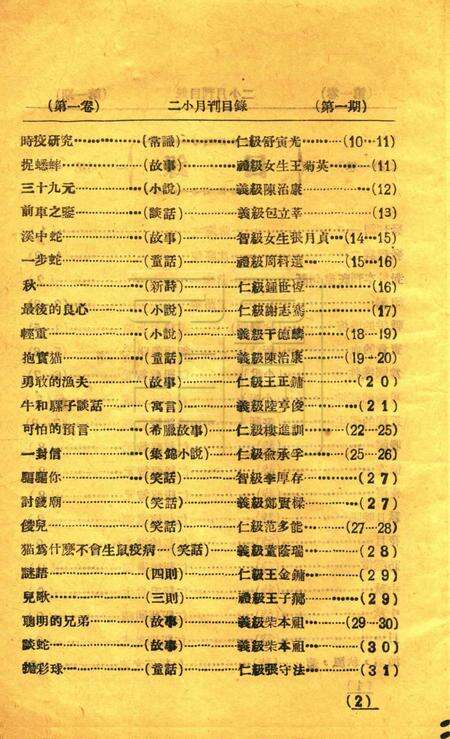 (第一卷) 二小月刊目錄 (第一期)
時疫研究…………(常識)…………仁級舒寅光……(10…11)
捉蟋蟀…………(故事)…………禮級女生王菊英……(11)
三十九元…………(小說)…………義級陳治康……(12)
前車之鑒…………(談話)…………義級包立莘……(13)
溪中蛇…………(故事)…………智級女生張月貞…(14…15)
一步蛇…………(童話)…………禮級周科運…(15…16)
秋…………(新詩)…………仁級鍾世俊……(16)
最後的良心…………(小說)…………仁級謝志騫……(17)
輕重…………(小說)…………義級干德麟……(18…19)
抱寶猫…………(童話)…………義級陳治康……(19…20)
勇敢的漁夫…………(故事)…………仁級王正鏞……(20)
牛和騾子談話…………(寓言)…………義級陸亨俊……(21)
可怕的預言…………(希臘故事)…………仁級樓進訓……(22…25)
一封信…………(集錦小說)…………仁級俞承孚……(25…26)
騙騙你…………(笑話)…………智級李厚存……(27)
討錢廟…………(笑話)…………義級鄭賢樑……(27)
儍兒…………(笑話)…………仁級范多能……(27…28)
猫爲什麼不會生鼠疫病…(笑話)……義級董蔭瑞……(28)
謎語…………(四則)…………仁級王金鏞……(29)
兒歌…………(三則)…………禮級王子瀧……(29)
聰明的兄弟…………(故事)…………義級柴本祖……(29…30)
談蛇…………(故事)…………義級柴本祖……(30)
拋彩球…………(童話)…………仁級張守法……(31)
(2)